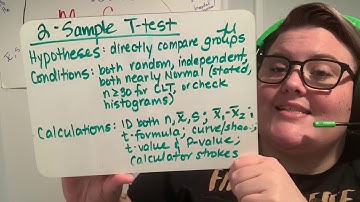 2-Sample T-test
Hypotheses: directly compare groups μ
Conditions: both random, independent,
both nearly Normal (stated,
n≥30 for CLT, or check
histograms)
Calculations: ID both n, x̄, s; x̄₁-x̄₂;
t-formula; curve/shade;
t-value & P-value;
calculator strokes